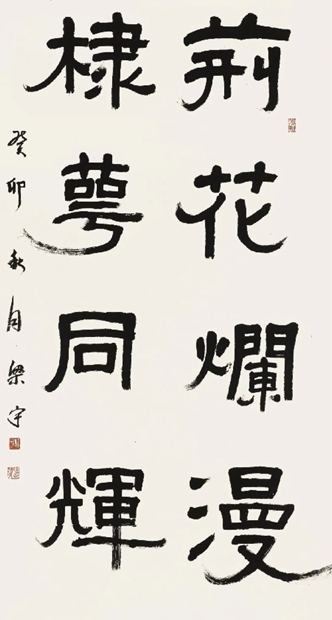 荊花爛漫
棣萼同輝
癸卯秋月梁宇